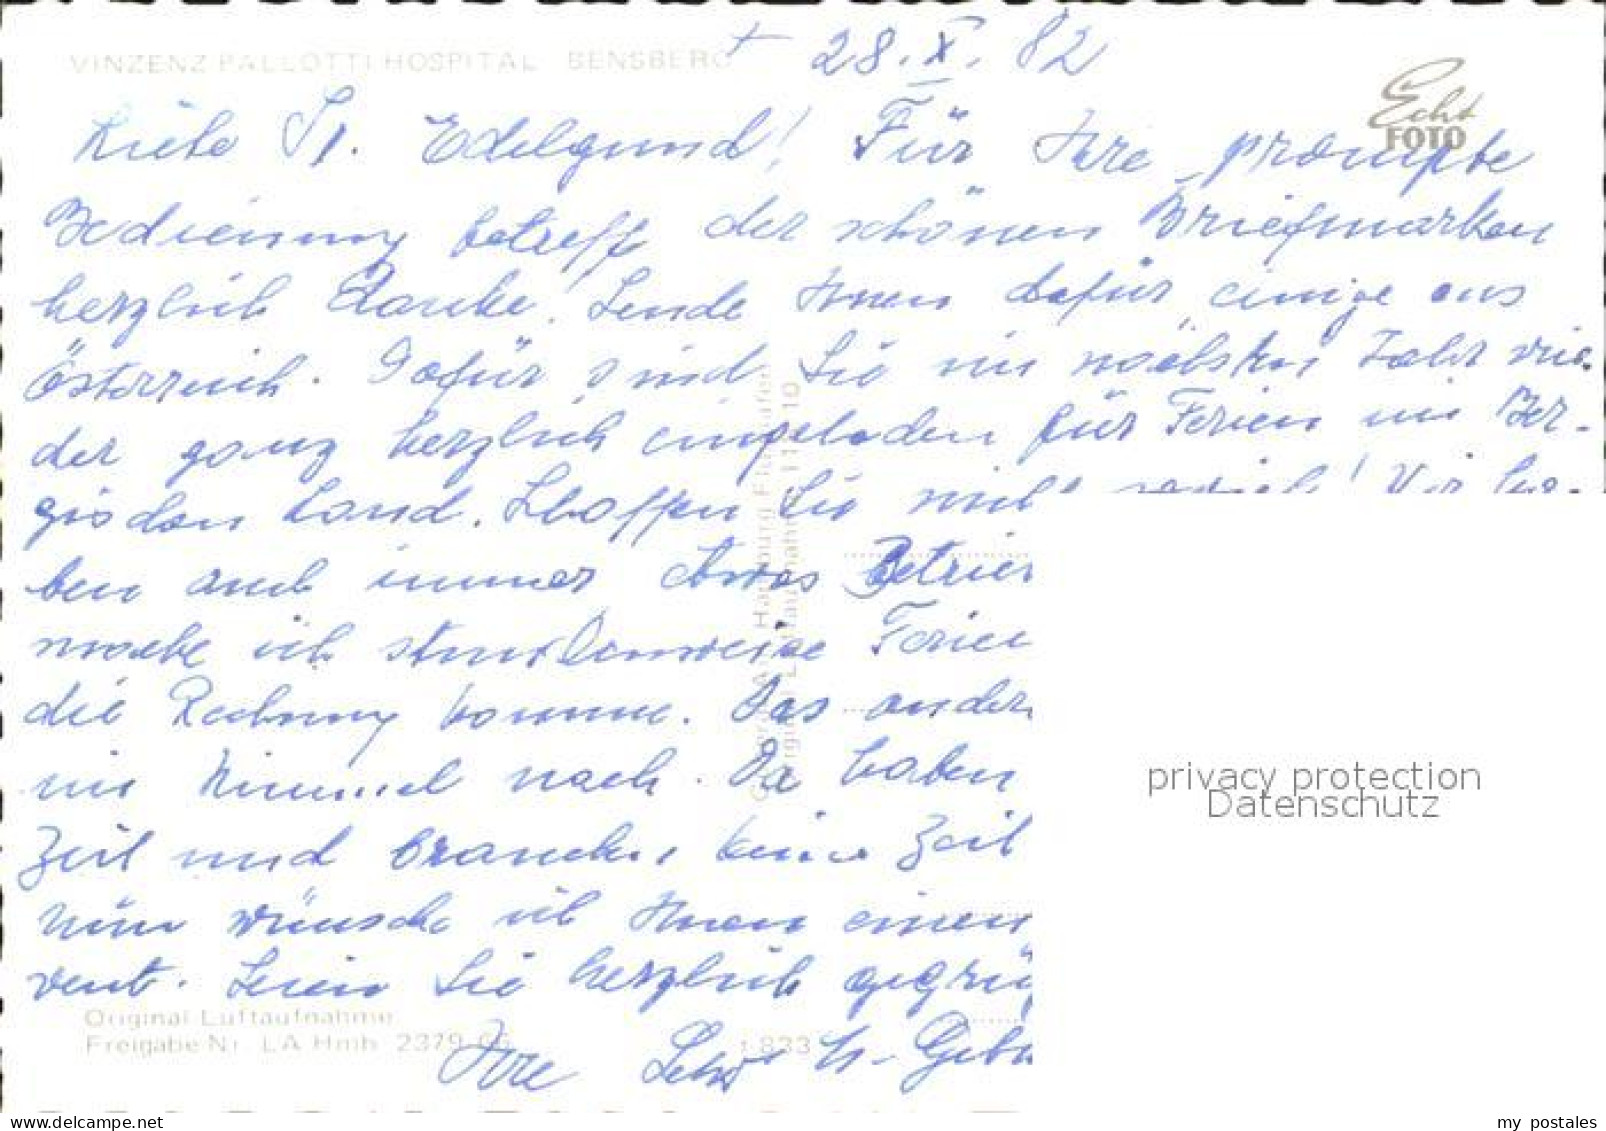 VINZENZ PALLOTTI HOSPITAL BENSBERG
+ 28. X. 82
Echt
FOTO
Liebe Sr. Edelgund! Für Ihre prompte
Bedienung betreff der schönen Briefmarken
herzlich Danke! Sende Ihnen dafür einige aus
Österreich. Dafür sind Sie im nächsten Jahr wie-
der ganz herzlich eingeladen für Ferien im Ber-
gischen Land. Schaffen Sie nicht soviel! Wir ha-
ben auch immer etwas Betrieb
mache ich stundenweise Ferien
die Rechnung komme. Das andere
im Himmel nach. Da haben
Zeit und brauchen keine Zeit
Nun wünsche ich Ihnen einen
vent. Seien Sie herzlich gegrü
Ihre Schw. M.
Original Luftaufnahme
Freigabe Nr. LA Hmb 2379 66
1833
privacy protection
Datenschutz
hosting by delcampe.net
my_postales